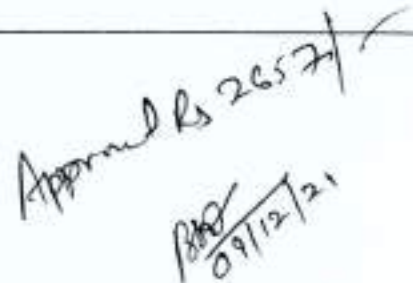 Approved Rs 2657/-
09/12/21